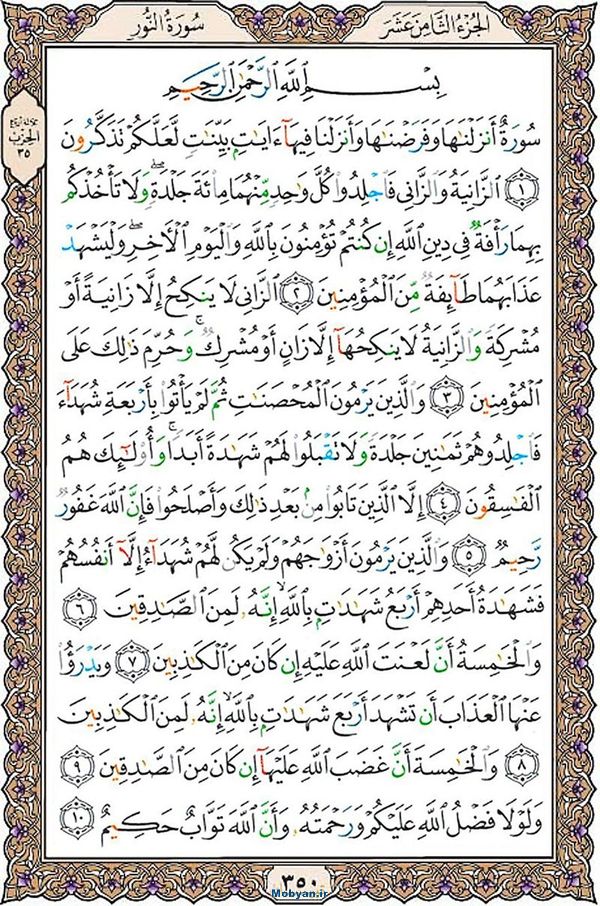 الجزء الثامن عشر
سورة النور
ثلاثة ارباع
الحزب
٣٥
بِسْمِ اللَّهِ الرَّحْمَٰنِ الرَّحِيمِ
سُورَةٌ أَنزَلْنَاهَا وَفَرَضْنَاهَا وَأَنزَلْنَا فِيهَآ ءَايَاتٍ بَيِّنَاتٍ لَّعَلَّكُمْ تَذَكَّرُونَ
﴿١﴾ الزَّانِيَةُ وَالزَّانِي فَاجْلِدُوا كُلَّ وَاحِدٍ مِّنْهُمَا مِائَةَ جَلْدَةٍ ۖ وَلَا تَأْخُذْكُم
بِهِمَا رَأْفَةٌ فِي دِينِ اللَّهِ إِن كُنتُمْ تُؤْمِنُونَ بِاللَّهِ وَالْيَوْمِ الْآخِرِ ۖ وَلْيَشْهَدْ
عَذَابَهُمَا طَآئِفَةٌ مِّنَ الْمُؤْمِنِينَ ﴿٢﴾ الزَّانِي لَا يَنكِحُ إِلَّا زَانِيَةً أَوْ
مُشْرِكَةً وَالزَّانِيَةُ لَا يَنكِحُهَآ إِلَّا زَانٍ أَوْ مُشْرِكٌ ۚ وَحُرِّمَ ذَٰلِكَ عَلَى
الْمُؤْمِنِينَ ﴿٣﴾ وَالَّذِينَ يَرْمُونَ الْمُحْصَنَاتِ ثُمَّ لَمْ يَأْتُوا بِأَرْبَعَةِ شُهَدَآءَ
فَاجْلِدُوهُمْ ثَمَانِينَ جَلْدَةً وَلَا تَقْبَلُوا لَهُمْ شَهَادَةً أَبَدًا ۚ وَأُولَٰٓئِكَ هُمُ
الْفَاسِقُونَ ﴿٤﴾ إِلَّا الَّذِينَ تَابُوا مِنۢ بَعْدِ ذَٰلِكَ وَأَصْلَحُوا فَإِنَّ اللَّهَ غَفُورٌ
رَّحِيمٌ ﴿٥﴾ وَالَّذِينَ يَرْمُونَ أَزْوَاجَهُمْ وَلَمْ يَكُن لَّهُمْ شُهَدَآءُ إِلَّآ أَنفُسُهُمْ
فَشَهَادَةُ أَحَدِهِمْ أَرْبَعُ شَهَادَاتٍ بِاللَّهِ ۙ إِنَّهُ لَمِنَ الصَّادِقِينَ ﴿٦﴾
وَالْخَامِسَةُ أَنَّ لَعْنَتَ اللَّهِ عَلَيْهِ إِن كَانَ مِنَ الْكَاذِبِينَ ﴿٧﴾ وَيَدْرَؤُا
عَنْهَا الْعَذَابَ أَن تَشْهَدَ أَرْبَعَ شَهَادَاتٍ بِاللَّهِ ۙ إِنَّهُ لَمِنَ الْكَاذِبِينَ
﴿٨﴾ وَالْخَامِسَةَ أَنَّ غَضَبَ اللَّهِ عَلَيْهَآ إِن كَانَ مِنَ الصَّادِقِينَ ﴿٩﴾
وَلَوْلَا فَضْلُ اللَّهِ عَلَيْكُمْ وَرَحْمَتُهُ وَأَنَّ اللَّهَ تَوَّابٌ حَكِيمٌ ﴿١٠﴾
٣٥٠
Mobyan.ir